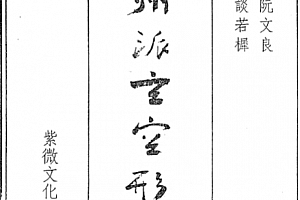 阮文良
談若
派玄空形
紫微文化